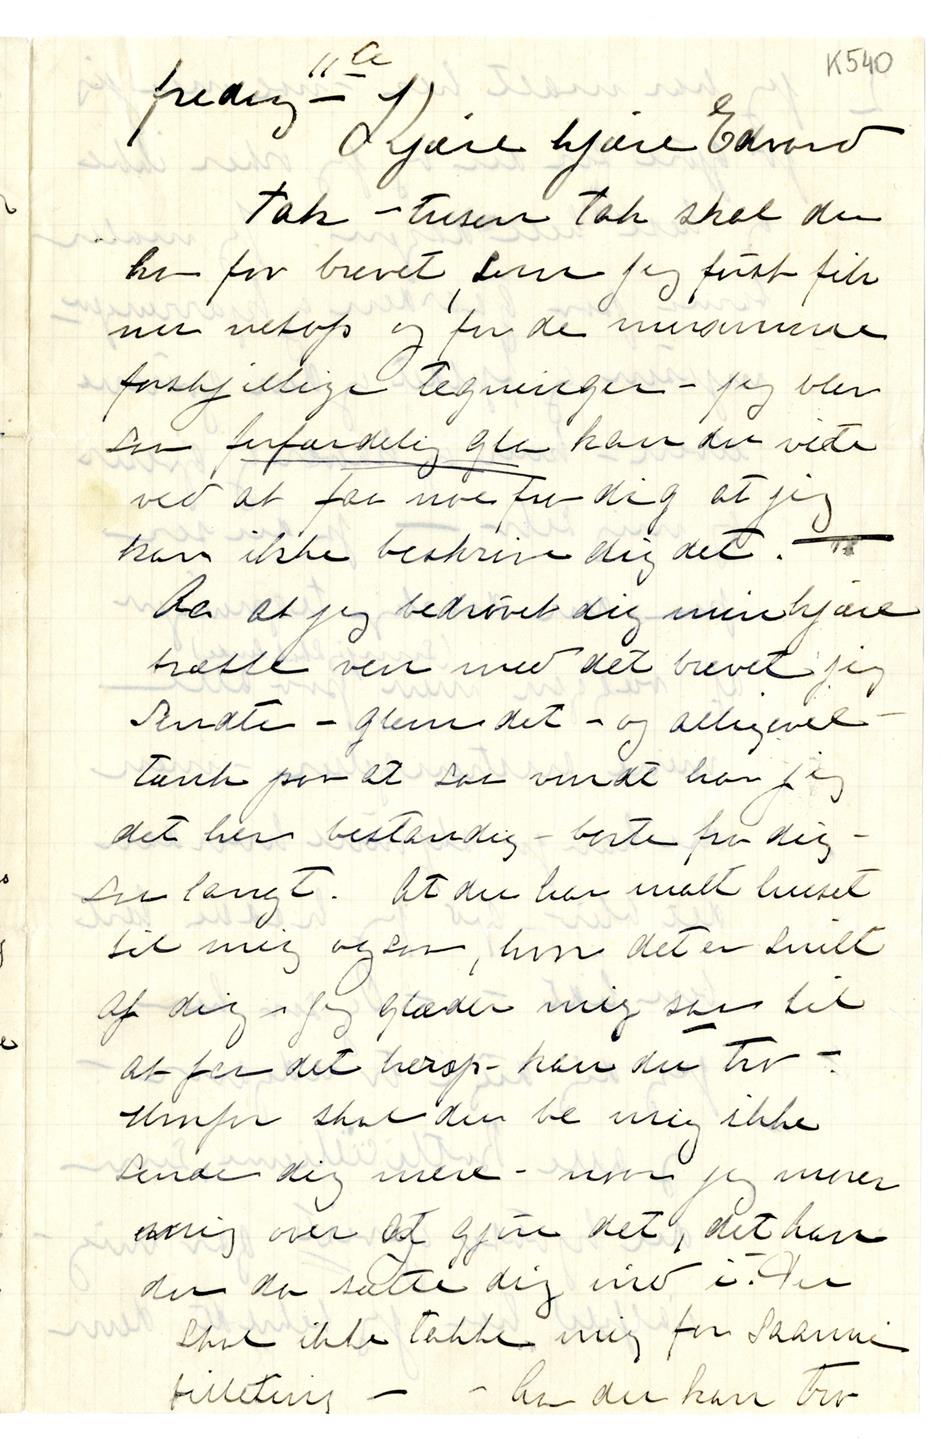 K540
fredag 11te
Kjære kjære Edvard
Tak – tusen tak skal du
ha for brevet, som jeg først fik
nu netop og for de morsomme
forskjellige tegninger – jeg blev
saa forfærdelig gla kan du vite
ved at faa noe fra dig at jeg
kan ikke beskrive dig det. –
Aa at jeg bedrøvet dig min kjære
trætte ven med det brevet jeg
sendte – glem det – og alligevel –
tænk paa at saa vondt har jeg
det her bestandig – borte fra dig –
saa langt. At du har malt huset
til mig ogsaa, hvor det er snilt
af dig – jeg glæder mig saa til
at faa det herop – kan du tro –.
Hvorfor skal du be mig ikke
sende dig mere – naar jeg morer
mig over at gjøre det, det kan
du da sætte dig ind i. Du
skal ikke takke mig for saanne
filleting – – Aa du kan tro